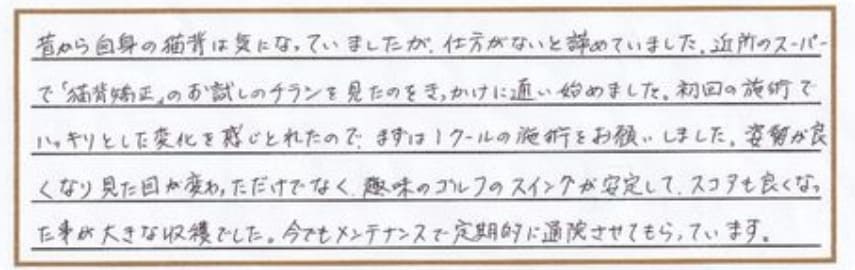 昔から自身の猫背は気になっていましたが、仕方がないと諦めていました。近所のスーパー
で「猫背矯正」のお試しのチラシを見たのをきっかけに通い始めました。初回の施術で
ハッキリとした変化を感じとれたので、まずは1クールの施術をお願いしました。姿勢が良
くなり見た目が変わっただけでなく、趣味のゴルフのスイングが安定して、スコアも良くなっ
た事が大きな収穫でした。今でもメンテナンスで定期的に通院させてもらっています。